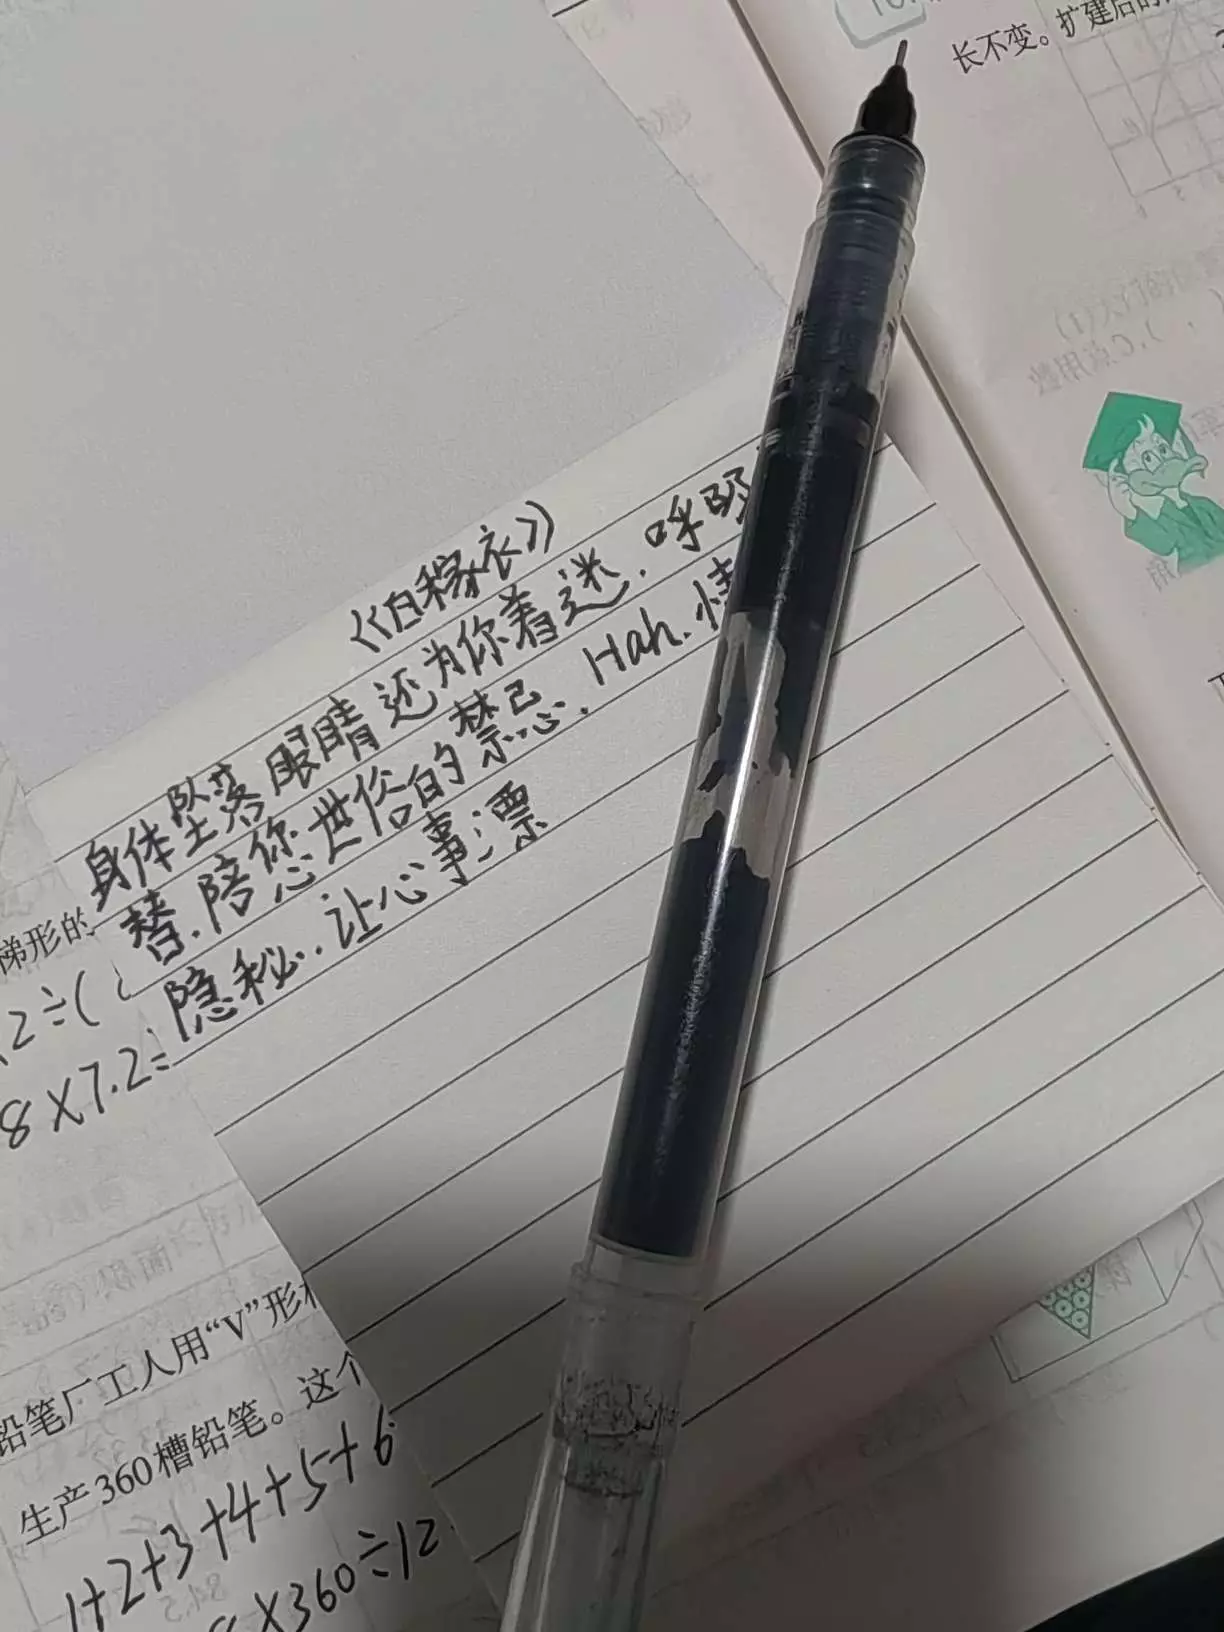 长不变。扩建后的
《白稼衣》
身体坠落眼睛还为你着迷.呼
替.陪您世俗的禁忌.Hah.情
隐秘..让心事漂
梯形的
2÷(
8×7.2=
铅笔厂工人用“V”形
生产360槽铅笔。这个
1+2+3+4+5+6
×360÷12